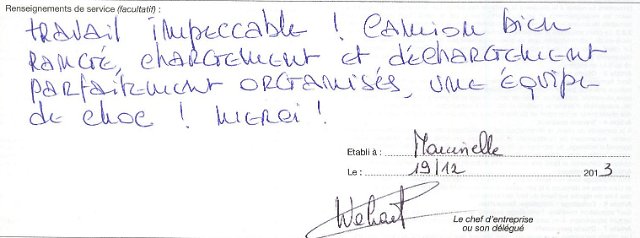 Renseignements de service (facultatif) :
TRAVAIL IMPECCABLE ! CAMION BIEN
RANGÉ, CHARGEMENT ET DÉCHARGEMENT
PARFAITEMENT ORGANISÉS, UNE ÉQUIPE
DE CHOC ! MERCI !
Etabli à : Marcinelle
Le : 19/12 2013
Le chef d'entreprise
ou son délégué